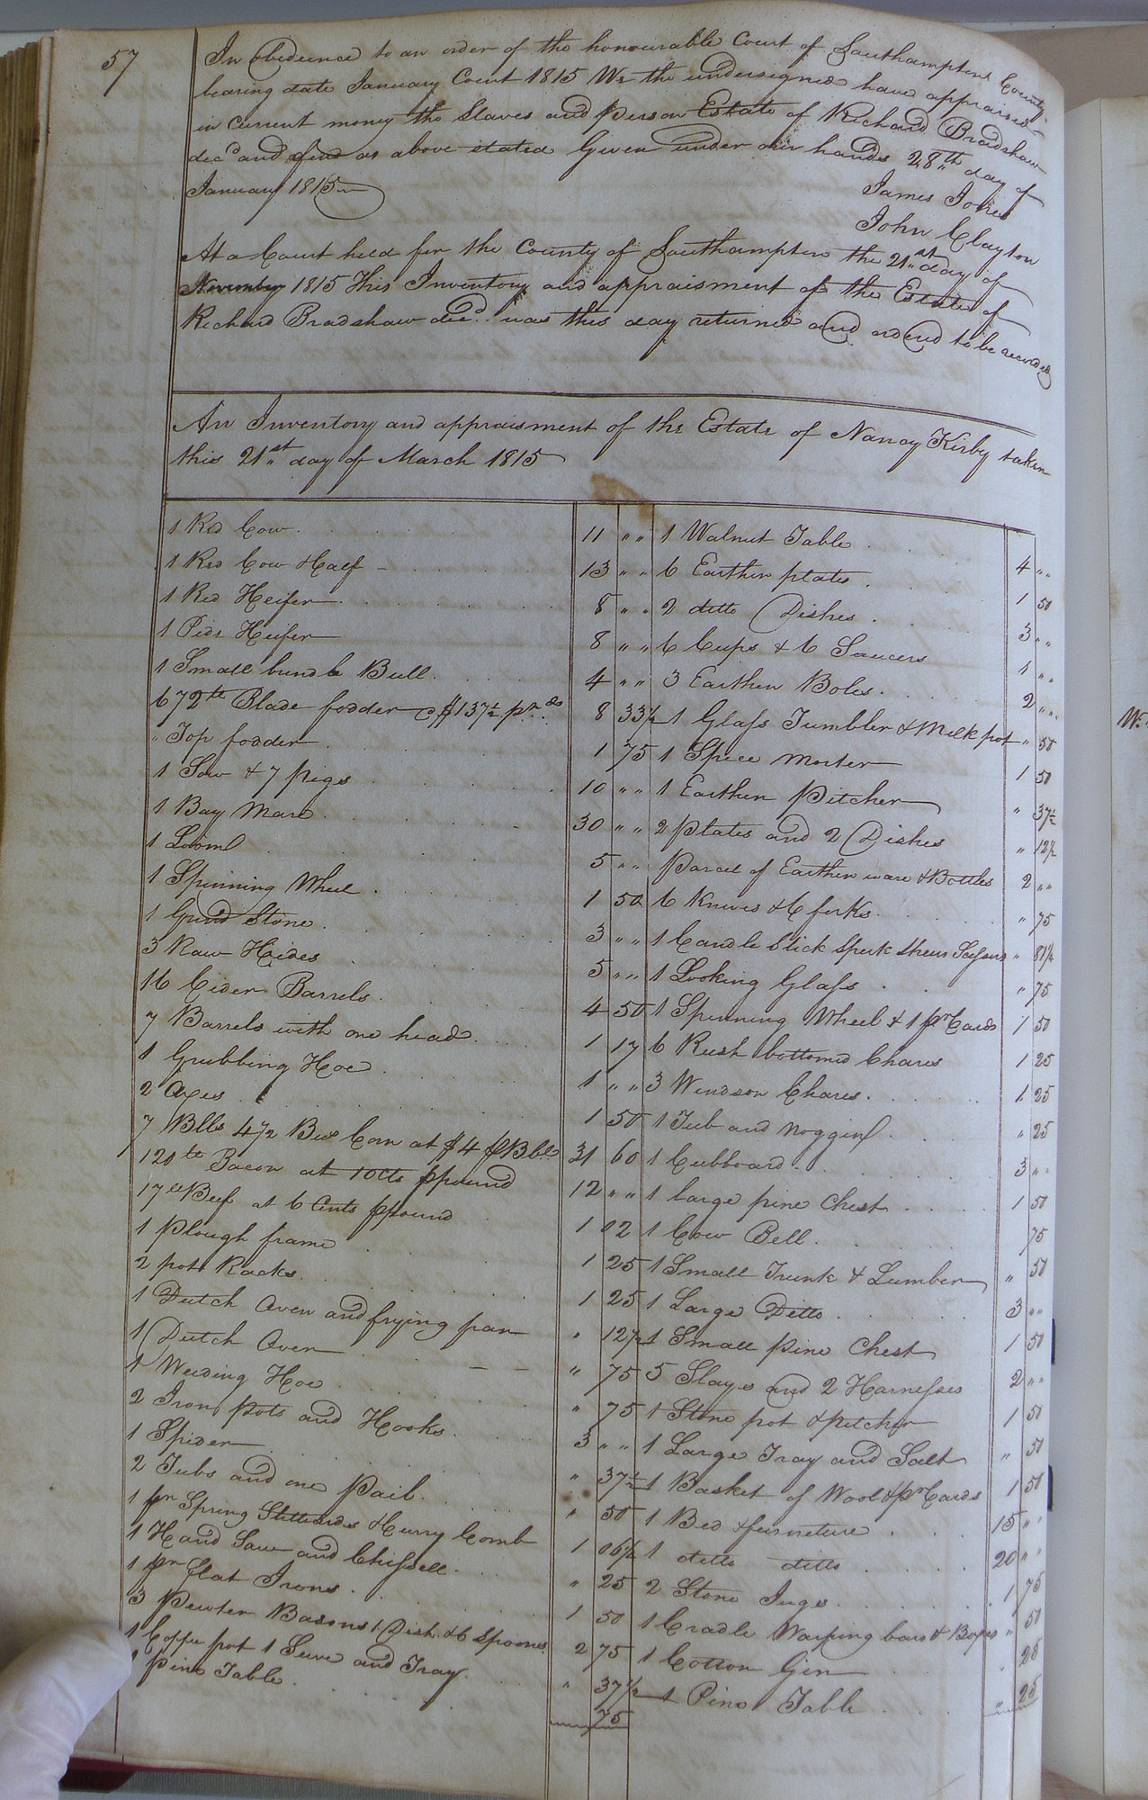 57
In Obedience to an order of the honourable Court of Southampton County
bearing date January Court 1815 We the undersigned have appraised
in current money the Slaves and person Estate of Richard Bradshaw
decd and find as above stated Given under our hands 28th day of
January 1815
James Jones
John Clayton
At a Court held for the County of Southampton the 21st day of
November 1815 This Inventory and appraisment of the Estate of
Richard Bradshaw decd. was this day returned and ordend to be recorded
An Inventory and appraisment of the Estate of Nancy Kirby taken
this 21st day of March 1815
1 Red Cow 11 " "
1 Red Cow & Calf 13 " "
1 Red Heifer 8 " "
1 Pide Heifer 8 " "
1 Small bundle Bull 4 " "
672 lb Blade fodder @ $1 37½ pr do 8 33½
" Top fodder 1 75
1 Sow & 7 pigs 10 " "
1 Bay Mare 30 " "
1 Loom 5 " "
1 Spinning Wheel 1 50
1 Grind Stone 3 " "
3 Raw Hides 5 " "
16 Cider Barrels 4 50
7 Barrels with one head 1 17
1 Grubbing Hoe 1 " "
2 Axes 1 50
7 Blls 4½ Bus Corn at $4 p Bbl 31 60
120 lb Bacon at 10 cts p pound 12 " "
17 lb Beef at 6 Cents p pound 1 02
1 Plough frame 1 25
2 pot Racks 1 25
1 Dutch Oven and frying pan " 12½
1 Dutch Oven " 75
1 Weeding Hoe " 75
2 Iron pots and Hooks 3 " "
1 Spider " 37½
2 Tubs and one Pail " 50
1 pr Spring Stilleards & Curry Comb 1 06½
1 Hand Saw and Chissell " 25
1 pr flat Irons 1 50
3 Pewter Basons 1 Dish & 6 Spoons 2 75
1 Coffee pot 1 Sieve and Tray " 37½
1 Pine Table 75
1 Walnut Table 4 " "
6 Earthen plates 1 50
2 ditto Dishes 3 " "
6 Cups & 6 Saucers 1 " "
3 Earthen Boles 2 " "
1 Glass Tumbler & Milk pot " 50
1 Spice Morter 1 50
1 Earthen Pitcher " 37½
2 Plates and 2 Dishes " 12½
Parcel of Earthen ware & Bottles 2 " "
6 Knives & 6 forks " 75
1 Candle Stick Shears " 81¼
1 Looking Glass " 75
1 Spinning Wheel & 1 pr Cards 1 50
6 Rush bottomed Chares 1 25
3 Windsor Chares 1 25
1 Tub and Noggin " 25
1 Cubboard 3 " "
1 large pine Chest 1 50
1 Cow Bell 75
1 Small Trunk & Lumber " 50
1 Large Ditto 3 " "
1 Small Pine Chest 1 50
5 Slays and 2 Harnesses 2 " "
1 Stone pot & pitcher 1 50
1 Large Tray and Salt " 50
1 Basket of Wool & pr Cards 1 50
1 Bed & furneture 15 " "
1 ditto ditto 20 " "
2 Stone Jugs 1 75
1 Cradle Warping bars & Boxes " 50
1 Cotton Gin . 25
1 Pine Table " 25